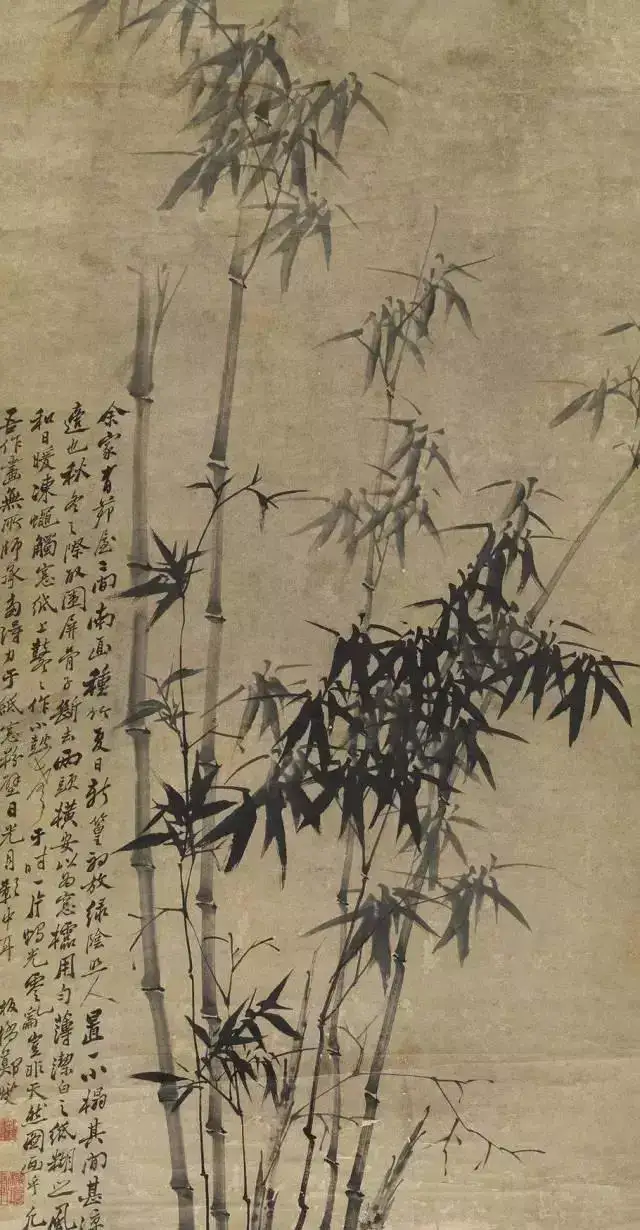 余家有茆屋二間南面種竹夏日新篁初放綠陰照人置一小榻其間甚涼
適也秋冬之際取圍屏骨子斷去兩頭橫安以為窓櫺用勻薄潔白之紙糊之風
和日暖凍蠅觸窓紙上鼕〻作小鼓聲于時一片光零亂豈非天然圖画乎凡
吾作畫無所師承多得力于紙窓粉壁日光月影中耳 板橋鄭燮